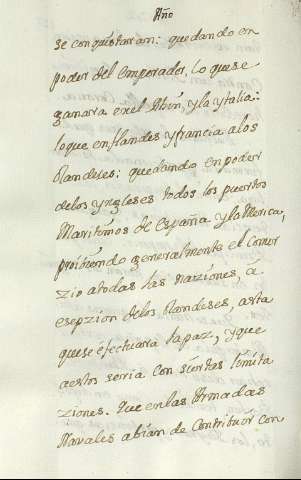 Año
se conquistaran: quedando en
poder del emperador, lo que se
ganara en el Rhin, y la ytalia:
lo que en flandes y francia a los
olandeses: quedando en poder
de los yngleses todos los puertos
Maritimos de España y la Merica,
proibiendo generalmente el Comer
zio atodas las naziones, á
esepzion delos olandeses, asta
que se efectuara la paz, y que
aestos seria con siertas limita
ziones. Que en las Armadas
Navales abian de Contribuir con